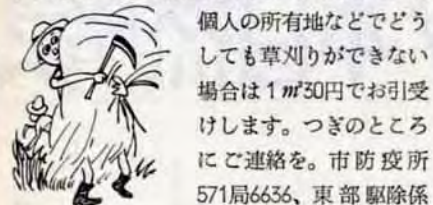 個人の所有地などでどう
しても草刈りができない
場合は1㎡30円でお引受
けします。つぎのところ
にご連絡を。市防疫所
571局6636、東部駆除係